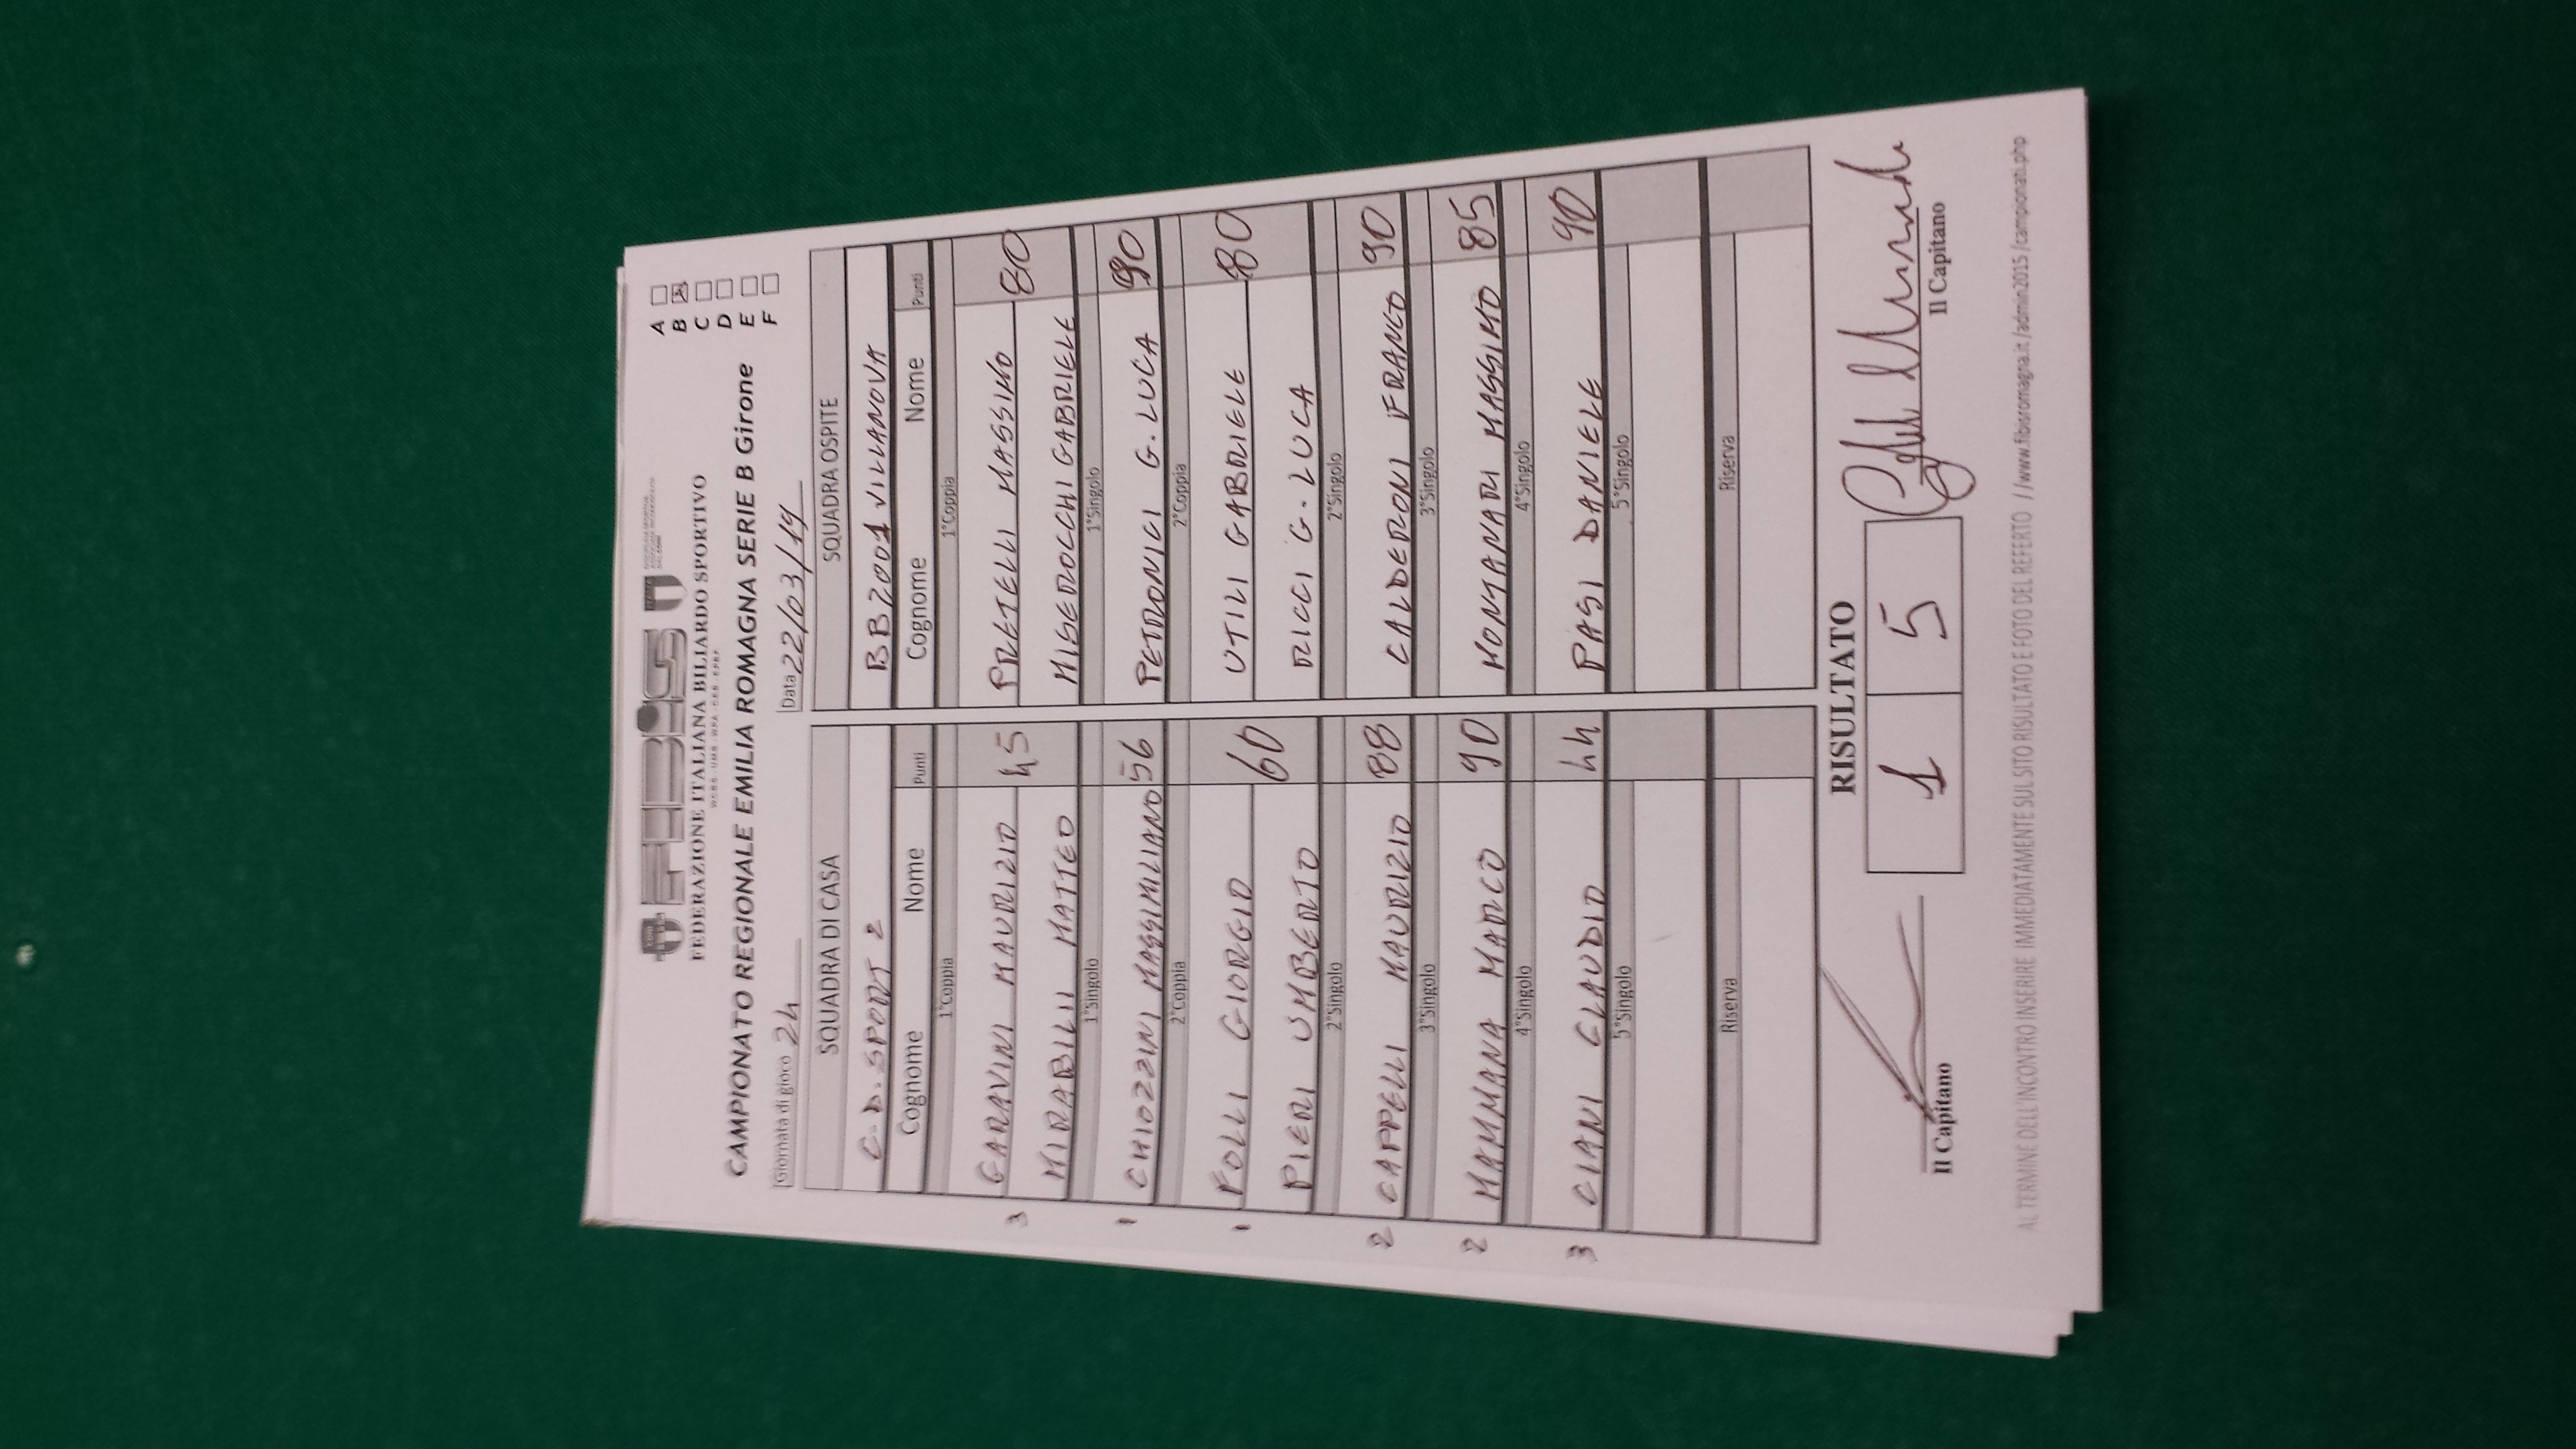 FEDERAZIONE ITALIANA BILIARDO SPORTIVO
CAMPIONATO REGIONALE EMILIA ROMAGNA SERIE B Girone
A
B
C
D
E
F
Giornata di gioco 24 Data 22/03/19
SQUADRA DI CASA SQUADRA OSPITE
C.D. SPORT 2 BB2001 VILLANOVA
Cognome Nome Punti Cognome Nome Punti
1°Coppia 1°Coppia
3 GARAVINI MAURIZIO 45 PRETELLI MASSIMO 80
MIRABILI MATTEO MISEROCCHI GABRIELE
1°Singolo 1°Singolo
1 CHIOZZINI MASSIMILIANO 56 PETRONICI G. LUCA 90
2°Coppia 2°Coppia
1 FOLLI GIORGIO 60 UTILI GABRIELE 80
PIERI UMBERTO RICCI G. LUCA
2°Singolo 2°Singolo
2 CAPPELLI MAURIZIO 88 CALDERONI FRANCO 90
3°Singolo 3°Singolo
2 MAMMANA MARCO 90 MONTANARI MASSIMO 85
4°Singolo 4°Singolo
3 CIANI CLAUDIO 44 PASI DANIELE 90
5°Singolo 5°Singolo
Riserva Riserva
RISULTATO
1 5
Il Capitano Il Capitano
AL TERMINE DELL'INCONTRO INSERIRE IMMEDIATAMENTE SUL SITO RISULTATO E FOTO DEL REFERTO //www.fibisromagna.it/admin2015/campionati.php